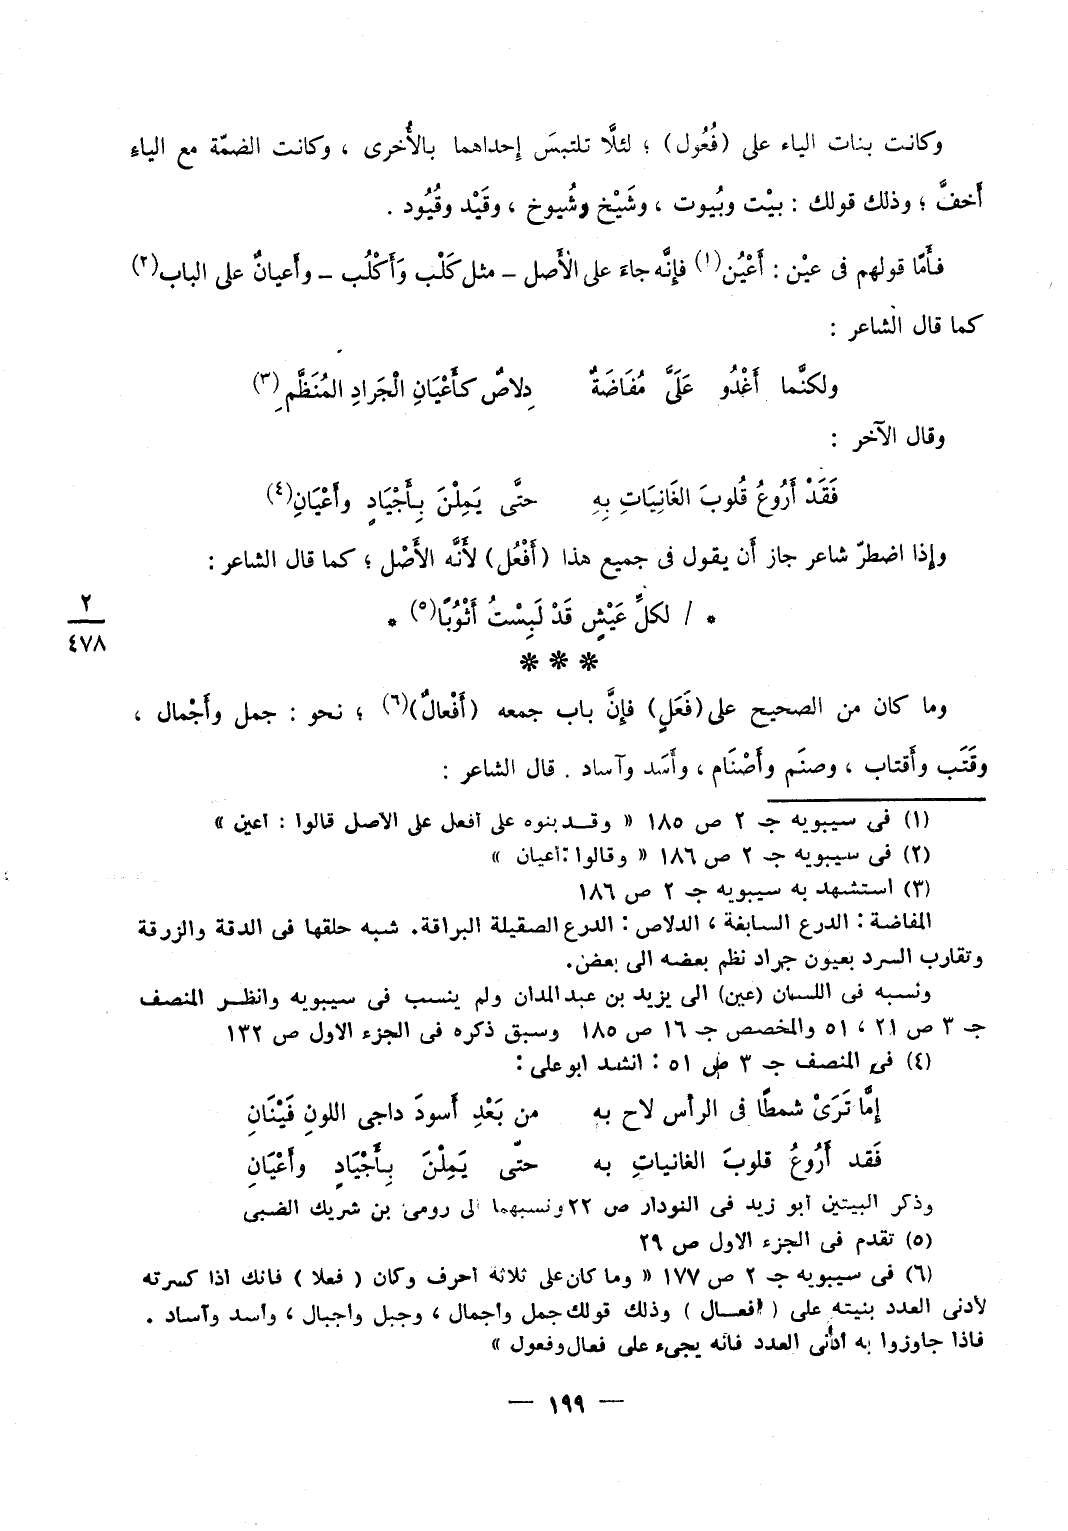 وكانت بنات الياء على (فُعُول) ؛ لئلَّا تلتبسَ إحداهما بالأُخرى ، وكانت الضمّة مع الياء
أَخفَّ ؛ وذلك قولك : بيْت وبُيوت ، وشَيْخ وشُيوخ ، وقَيْد وقُيُود .
فأَمَّا قولهم فى عيْن : أَعْيُن(١) فإِنَّه جاءَ على الأَصل – مثل كَلْب وَأَكْلُب – وأَعيانٌ على الباب(٢)
كما قال الشاعر :
ولكنَّما أَغْدُو عَلَىَّ مُفَاضَةٌ دِلاصٌ كأَعْيَانِ الْجَرادِ المُنَظَّمِ(٣)
وقال الآخر :
فَقَدْ أَرُوعُ قُلوبَ الغَانِيَاتِ بِهِ حتَّى يَمِلْنَ بِأَجْيَادٍ وأَعْيَانِ(٤)
وإِذا اضطرّ شاعر جاز أَن يقول فى جميع هذا (أَفْعُل) لأَنَّه الأَصْل ؛ كما قال الشاعر :
* / لكلِّ عَيْشٍ قَدْ لَبِسْتُ أَثْوُبًا(٥) *
٢
٤٧٨
* * *
وما كان من الصحيح على (فَعَلٍ) فإِنَّ باب جمعه (أَفْعالٌ)(٦) ؛ نحو : جمل وأَجْمال ،
وقَتَب وأَقتاب ، وصنَم وأَصْنَام ، وأَسَد وآساد . قال الشاعر :
(١) فى سيبويه جـ ٢ ص ١٨٥ « وقد بنوه على أفعل على الأصل قالوا : أعين »
(٢) فى سيبويه جـ ٢ ص ١٨٦ « وقالوا : أعيان »
(٣) استشهد به سيبويه جـ ٢ ص ١٨٦
المفاضة : الدرع السابغة ، الدلاص : الدرع الصقيلة البراقة. شبه حلقها فى الدقة والزرقة
وتقارب السرد بعيون جراد نظم بعضه الى بعض.
ونسبه فى اللسان (عين) الى يزيد بن عبد المدان ولم ينسب فى سيبويه وانظر المنصف
جـ ٣ ص ٢١ ، ٥١ والمخصص جـ ١٦ ص ١٨٥ وسبق ذكره فى الجزء الاول ص ١٣٢
(٤) فى المنصف جـ ٣ ص ٥١ : انشد ابو على :
إِمَّا تَرَىْ شمطًا فى الرأس لاح به من بَعْدِ أَسودَ داجى اللونِ فَيْنَانِ
فَقد أَرُوعُ قلوبَ الغانياتِ به حتّى يَمِلْنَ بِأَجْيَادٍ وأَعْيَانِ
وذكر البيتين أبو زيد فى النودار ص ٢٢ ونسبهما الى رومى بن شريك الضبى
(٥) تقدم فى الجزء الاول ص ٢٩
(٦) فى سيبويه جـ ٢ ص ١٧٧ « وما كان على ثلاثة أحرف وكان ( فعلا ) فانك اذا كسرته
لأدنى العدد بنيته على ( أفعال ) وذلك قولك جمل وأجمال ، وجبل وأجبال ، وأسد وآساد .
فاذا جاوزوا به أدنى العدد فانه يجىء على فعال وفعول »
— ١٩٩ —